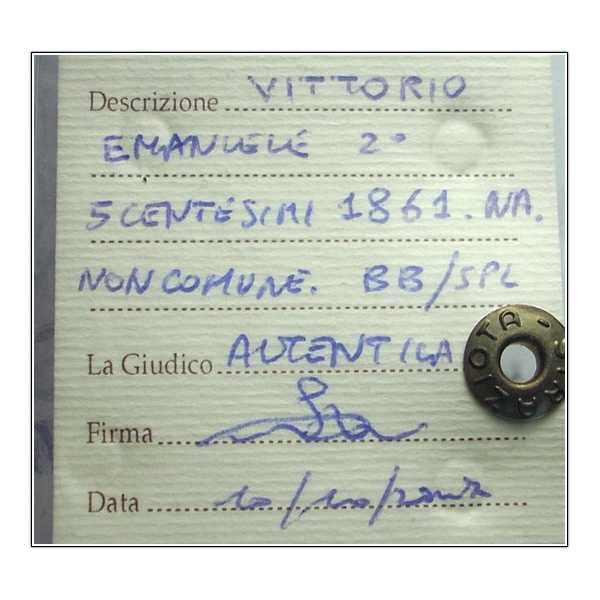 Descrizione VITTORIO
EMANUELE 2°
5 CENTESIMI 1861. NA.
NON COMUNE. BB/SPL
La Giudico AUTENTICA
Firma
Data 10/10/